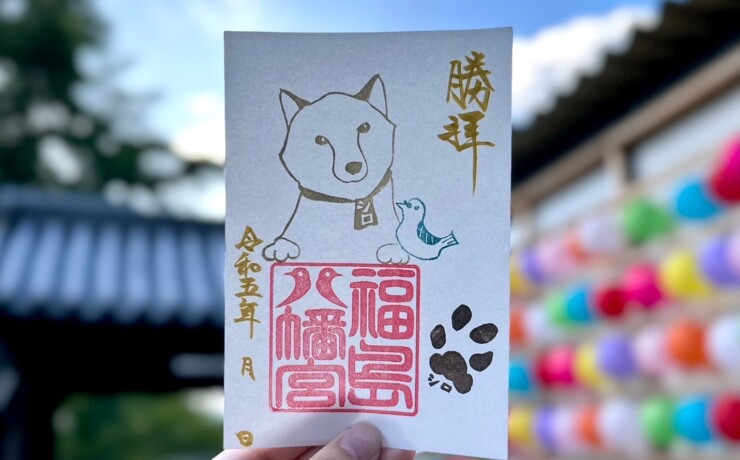 勝拝
シロ
福島
八幡宮
シロ
令和五年 月 日